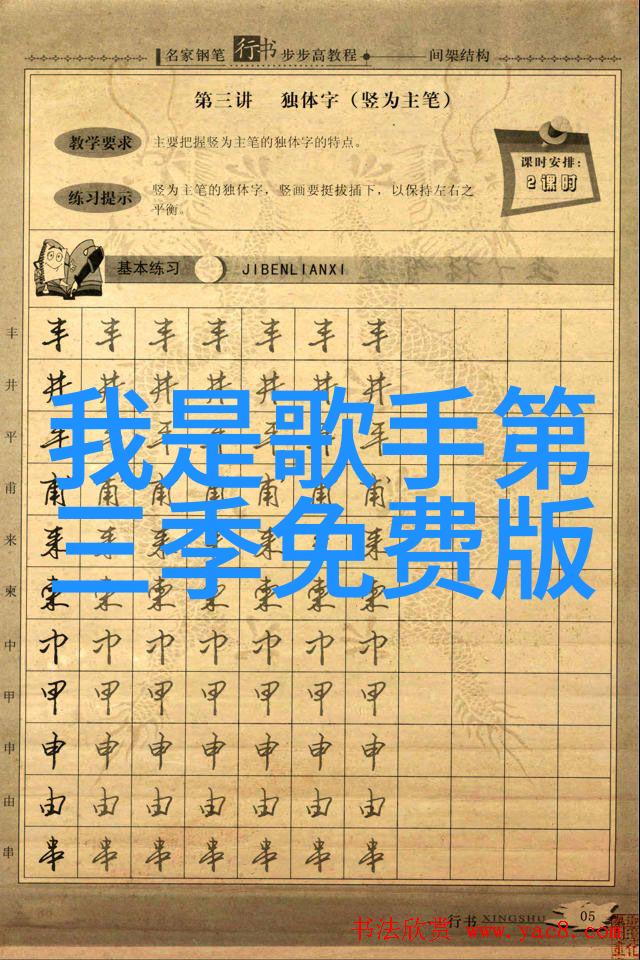 名家钢笔 行书 步步高教程 间架结构
第三讲 独体字（竖为主笔）
教学要求 主要把握竖为主笔的独体字的特点。
课时安排：
2课时
练习提示 竖为主笔的独体字，竖画要挺拔插下，以保持左右之
平衡。
基本练习 JIBENLIANXI
丰 丰 丰 丰 丰 丰 丰 丰
井 井 井 井 井 井 井 井
我是歌手第
平 平 平 平 平 平 平 平
甫 甫 甫 甫 甫 甫 甫 甫
三季免费版
来 来 来 来 来 来 来 来
柬 柬 柬 柬 柬 柬 柬 柬
中 中 中 中 中 中 中 中
甲 甲 甲 甲 甲 甲 甲 甲
申 申 申 申 申 申 申 申
由 由 由 由 由 由 由 由
串 串 串 串 串 串 串 串
行书 XINGSHU 05
书法欣赏 www.yac8.com